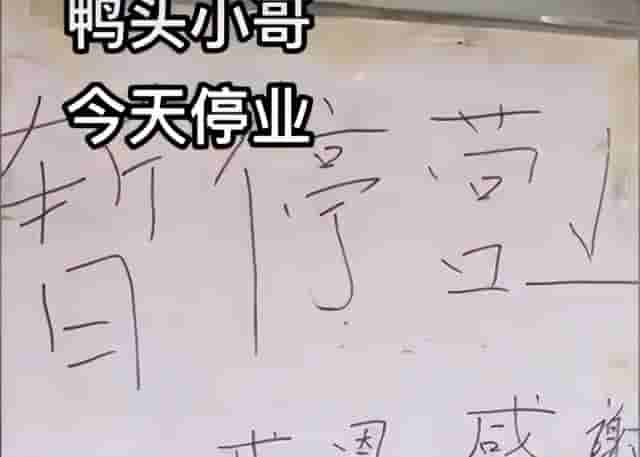 鸭头小哥
今天停业
暂停营业
感恩 感谢